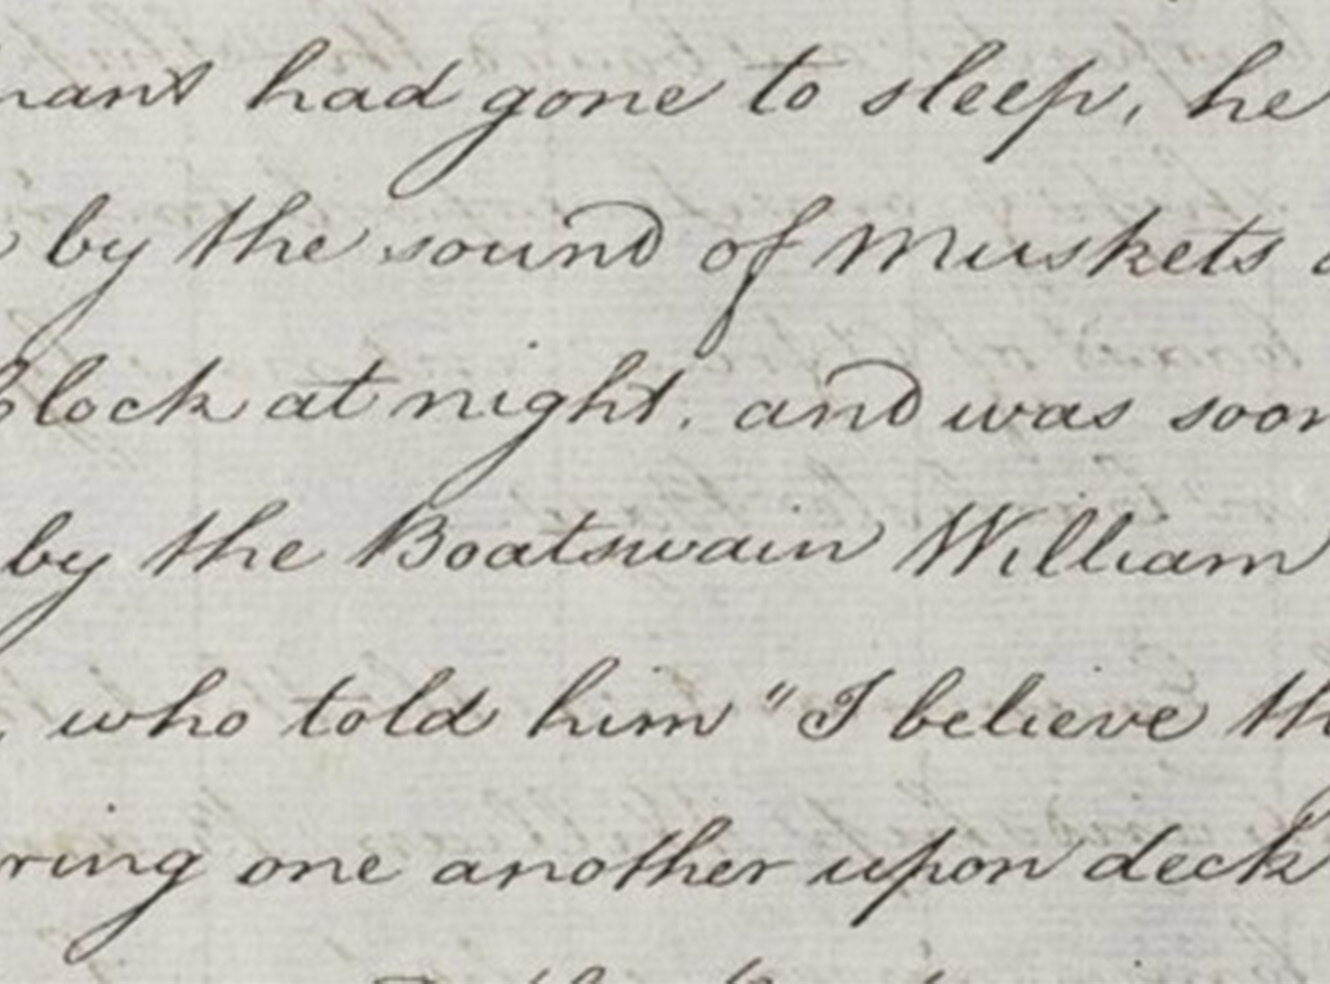 had gone to sleep, he
by the sound of Muskets
Clock at night, and was soon
by the Boatswain William
who told him "I believe
one another upon deck